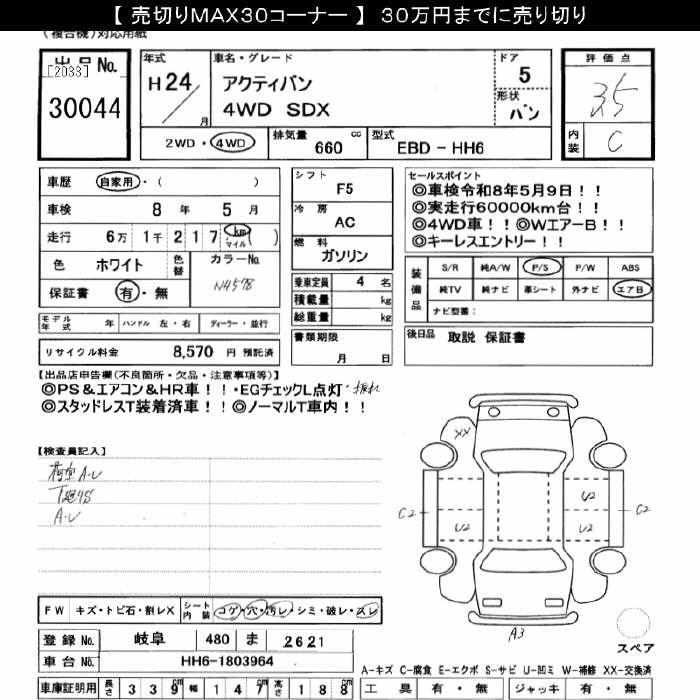 【 売切りMAX30コーナー 】 30万円までに売り切り
(複合機)対応用紙
出品No.
[2033]
30044
年式
H24/
月
車名・グレード
アクティバン
4WD SDX
ドア
5
形状
バン
評価点
3.5
内装
C
2WD・4WD
排気量
660
cc
型式
EBD-HH6
車歴
自家用・( )
車検
8 年 5 月
走行
6万 1千 2 1 7 km マイル ( )
色
ホワイト
色替
カラーNo.
NH578
保証書
有・無
モデル年式
年
ハンドル 左・右
ディーラー・並行
リサイクル料金
8,570 円 預託済
シフト
F5
冷房
AC
燃料
ガソリン
乗車定員
4 名
積載量
kg
総重量
kg
書類期限
月 日
セールスポイント
◎車検令和8年5月9日!!
◎実走行60000km台!!
◎4WD車!!◎WエアーB!!
◎キーレスエントリー!!
装備品
S/R 純A/W P/S P/W ABS
純TV 純ナビ 革シート 外ナビ エアB
ナビ型番:
後日品
取説 保証書
【出品店申告欄(不良箇所・欠品・注意事項等)】
◎PS&エアコン&HR車!!・EGチェックL点灯・振れ
◎スタッドレスT装着済車!!◎ノーマルT車内!!
【検査員記入】
荷室 A-U
A-U
XX
C2
U2
U2
U2
U2
C2
A3
スペア
FW
キズ・トビ石・割レX
シート内装
コゲ・穴・汚レ・シミ・破レ・スレ
登録No.
岐阜 480 ま 2621
車台No.
HH6-1803964
車庫証明用
長さ 339 幅 147 高さ 188
A-キズ C-腐食 E-エクボ S-サビ U-凹ミ W-補修 XX-交換済
工具 有・無
ジャッキ 有・無